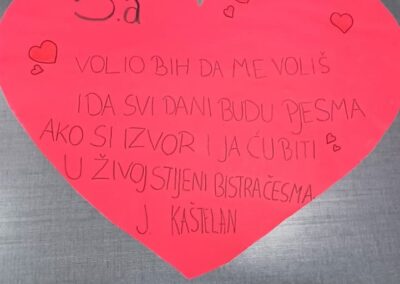 3.a
VOLIO BIH DA ME VOLIŠ
I DA SVI DANI BUDU PJESMA
AKO SI IZVOR I JA ĆU BITI
U ŽIVOJ STIJENI BISTRA ČESMA.
J KAŠTELAN